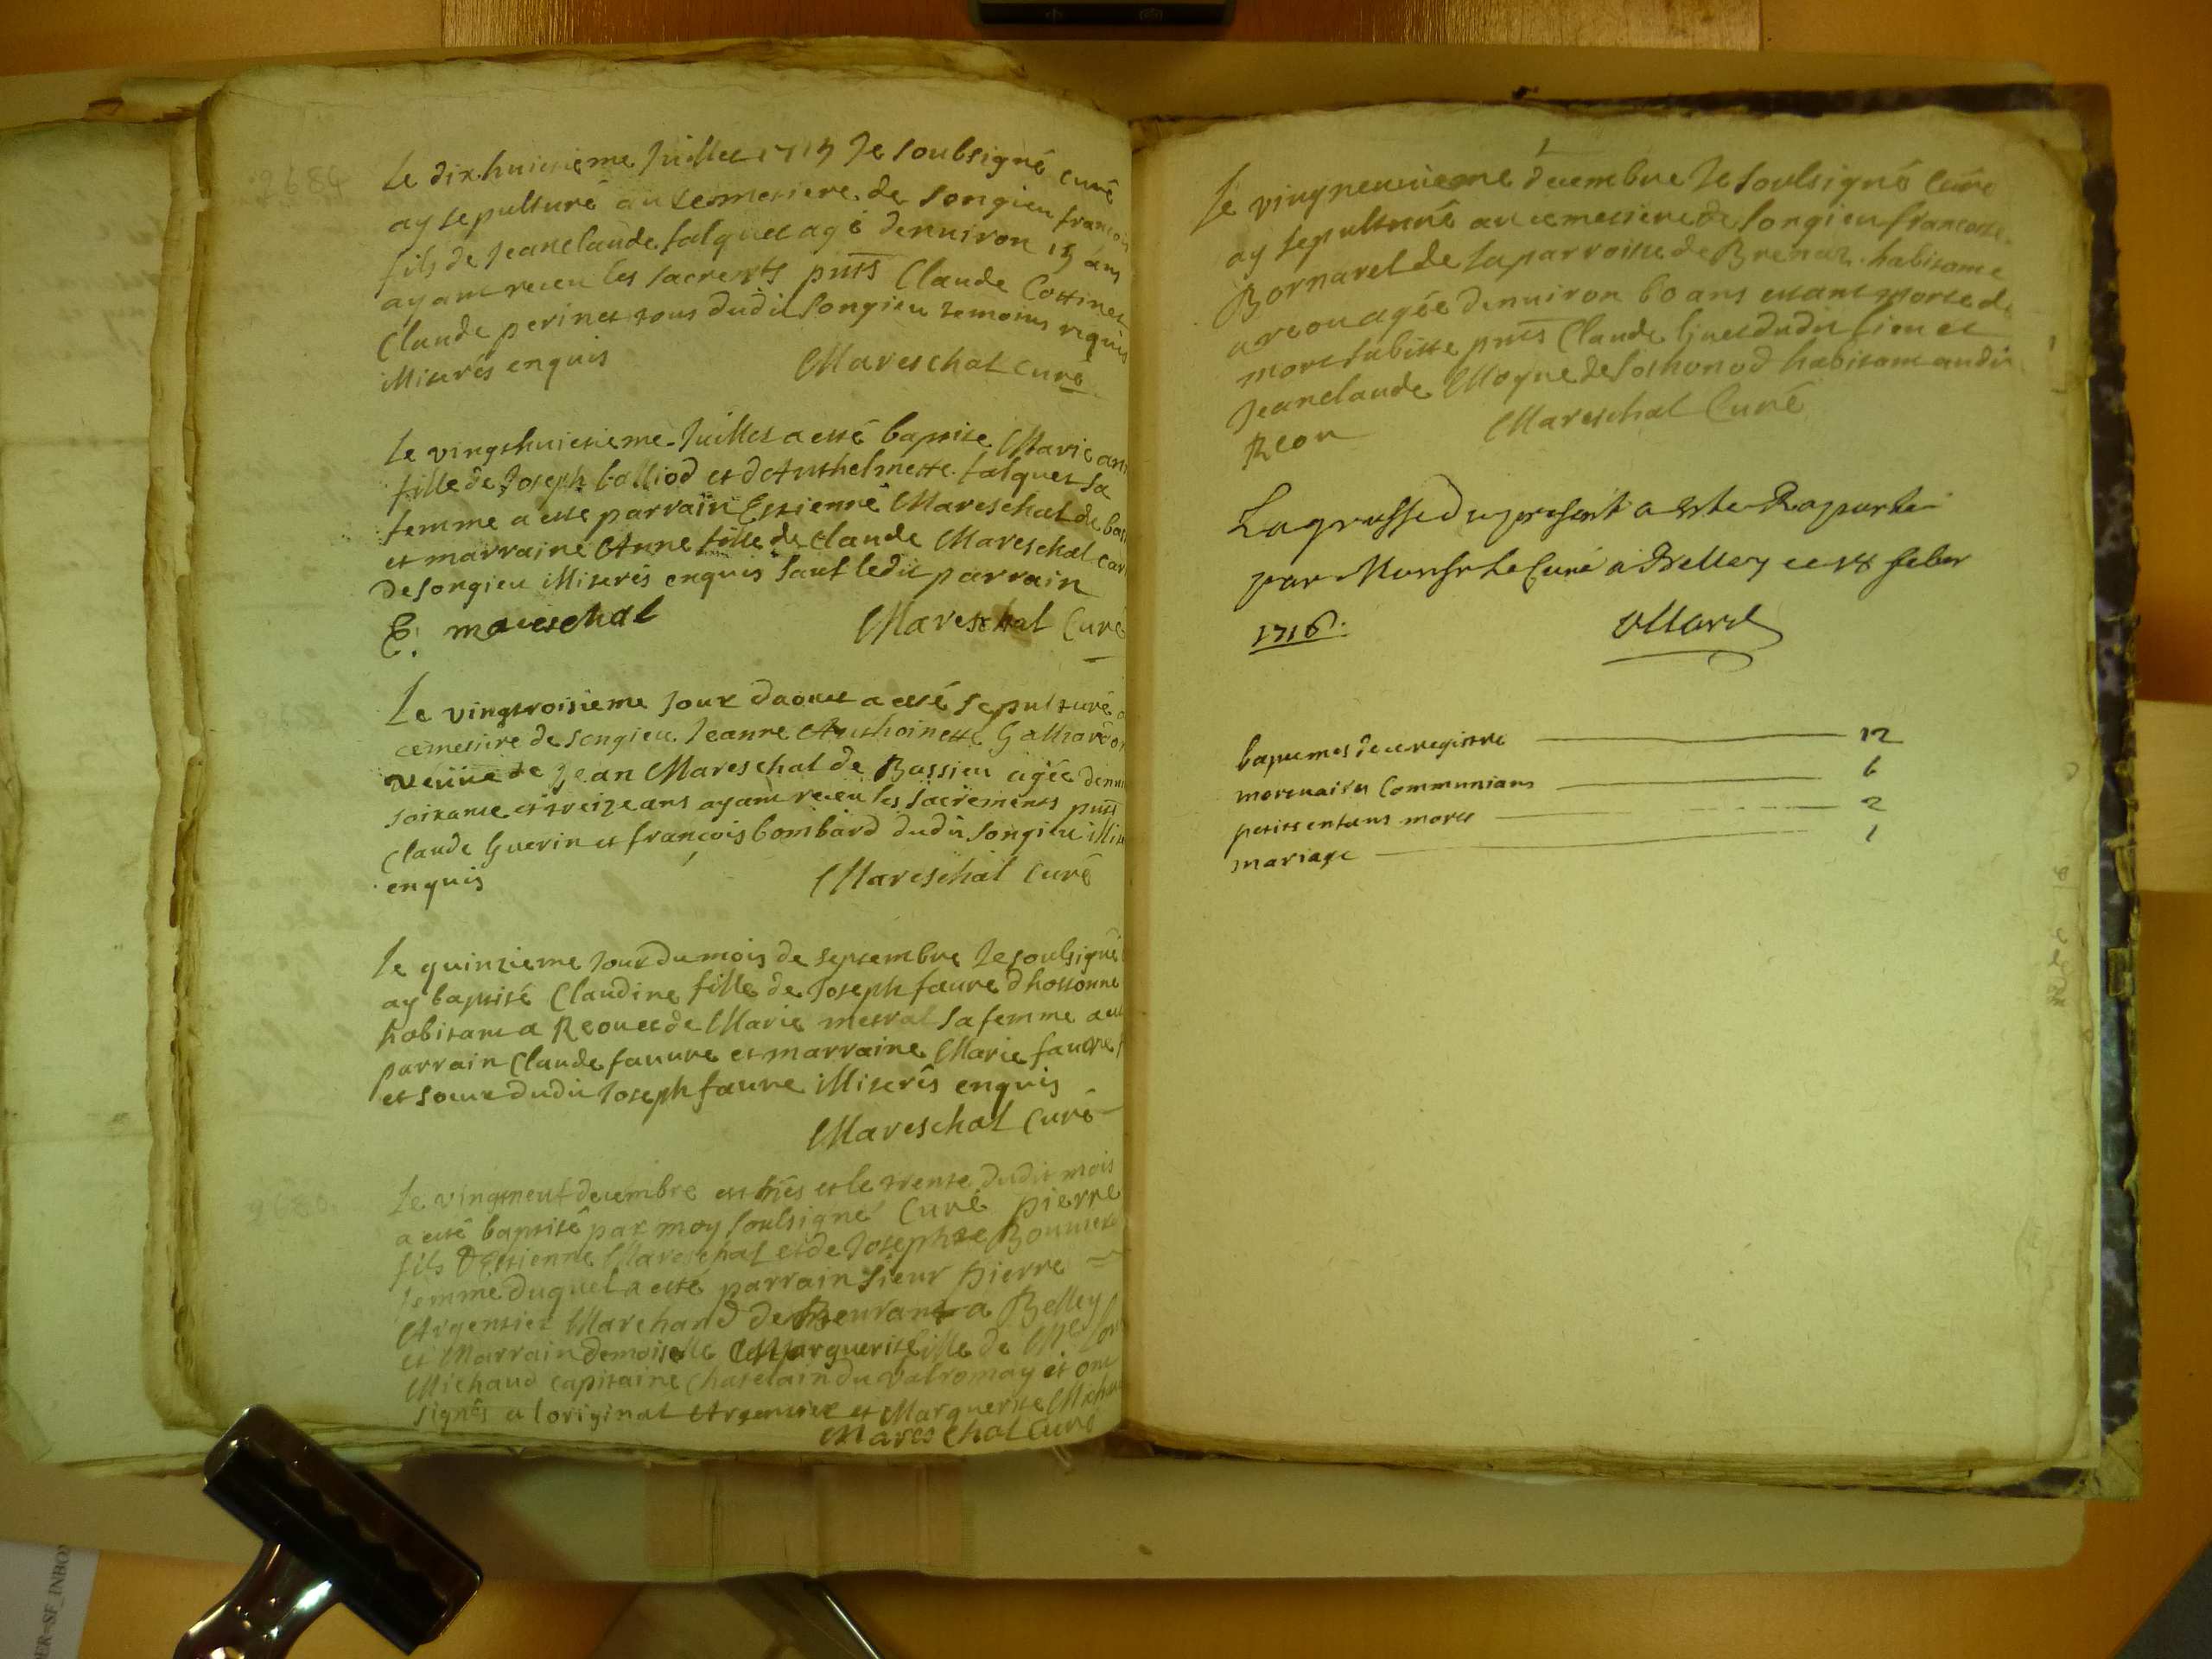 Le dixhuitieme Juillet 1715 Je soubsigné curé
ay sepulturé au cemetiere de songieu francois
fils de Jeanclaude falquet agé denuiron 15 ans
ayant receu les sacremts pnts Claude Cottinet
Claude perinet tous dudit songieu temoins requis
illiterés enquis Mareschal curé
Le vingthuictieme Juillet a esté baptise Marie ann
fille de Joseph balliod et dAnthelmette falquet sa
femme a esté parrain Estienne Mareschal de bas
et marraine Anne fille de Claude Mareschal
de songieu illiterés enquis sauf ledit parrain
E. mareschal Mareschal Curé
Le vingtroisieme Jour daoust a esté sepulturé
cemetiere de songieu Jeanne Anthoinette
veuue de Jean Mareschal de Bassieu agée denui
soixante et treize ans ayant receu les sacrements pnts
Claude Guerin et francois bombard dudit songieu illit
enquis Mareschal Curé
Le quinzieme Jour du mois de septembre Je soulsigné
ay baptisé Claudine fille de Joseph faure dhostonne
habitant a Reou et de Marie metral sa femme a esté
parrain Claude fauure et marraine Marie fauure
et soeur dudit Joseph faure illiterés enquis
Mareschal Curé
2684
2680.
Le vingtneuf decembre est nés et le trente dudit mois
a esté baptisé par moy soulsigné Curé pierre
fils dEstienne Mareschal et de Josephte
femme duquel a esté parrain sieur pierre
Argentier Marchand de a Belley
et Marrain demoiselle Marguerite fille de Me
Michaud capitaine Chatelain du valromay et ont
signés a loriginal Argentier et Marguerite Micha
Mareschal Curé
Le vingneuuieme decembre Je soulsigné Curé
ay sepulturé au cemetiere de songieu francoise
Bornarel de la parroisse de Brenaz habitante
a reou agée denuiron 60 ans estant morte de
mort subitte pnts Claude dudit lieu et
Jeanclaude Moyne de sothonod habitant audit
Reou Mareschal Curé
La grosse du present a este Raportée
par Monsr le Curé a Belley ce 18 feber
1716.
baptemes de ce registre 12
mortuaires Communians 6
petits enfans morts 2
mariage 1